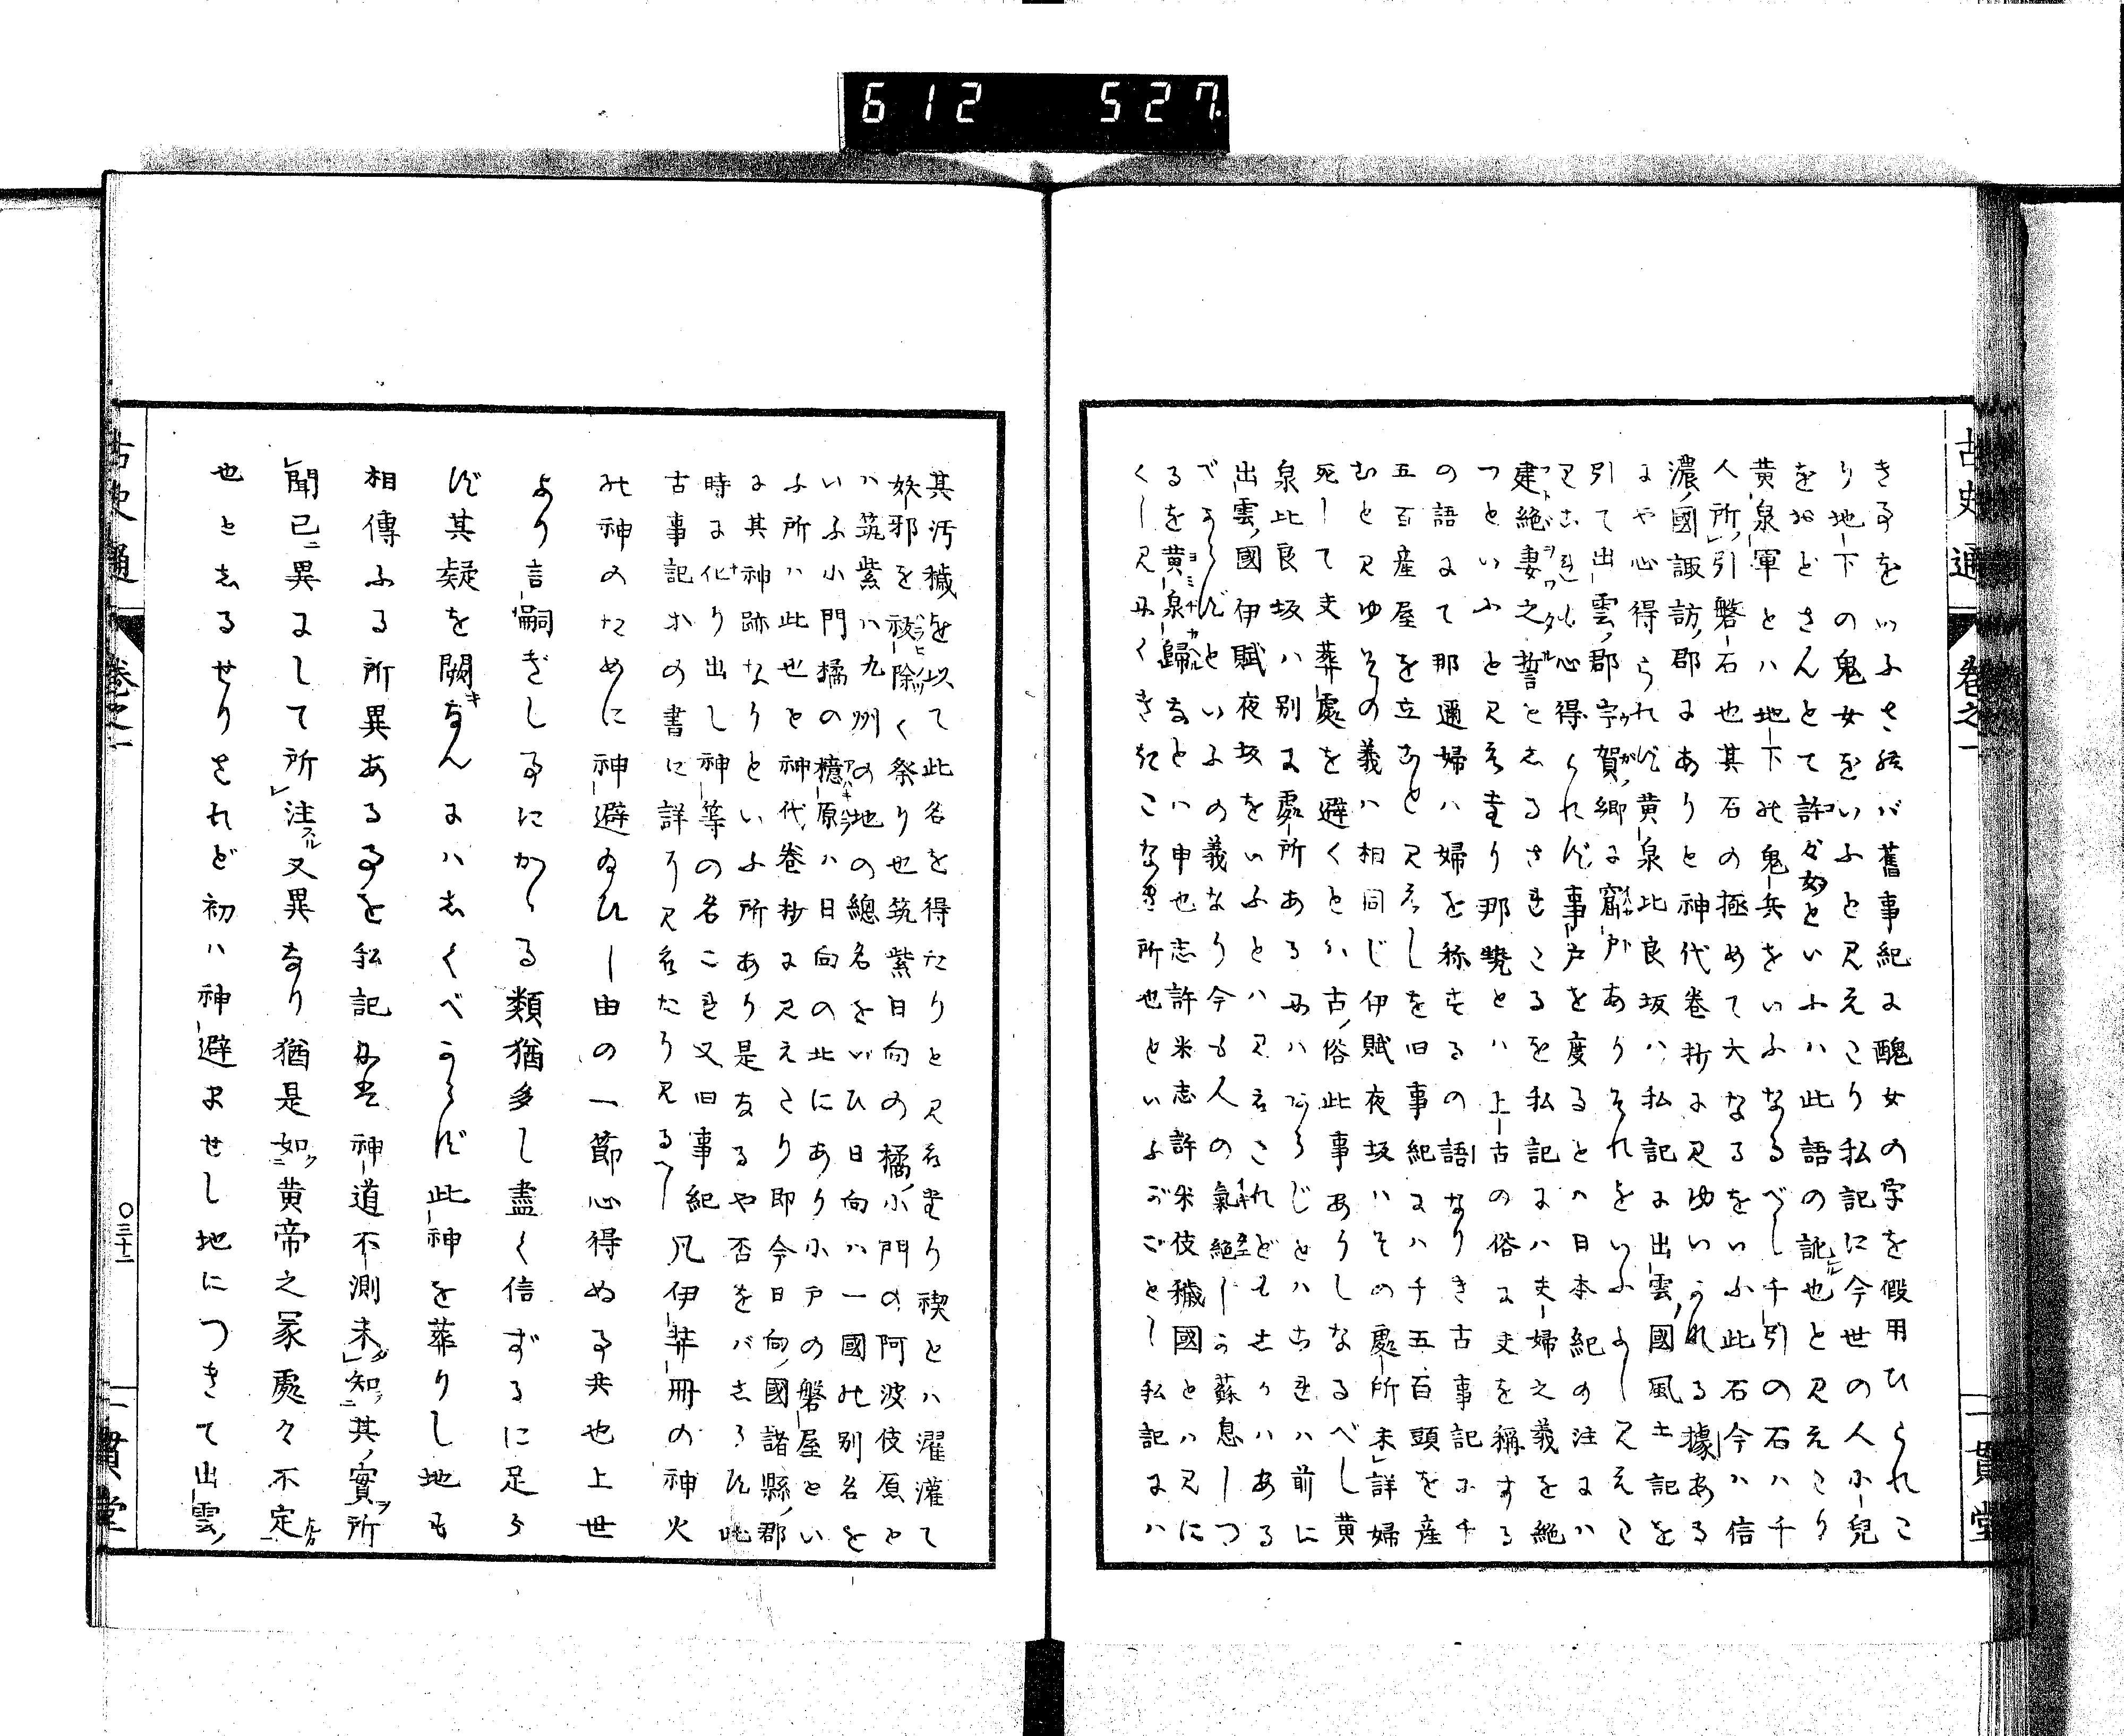 612 527
古史通
卷之一
一貫堂
きるをいふされバ舊事紀に醜女の字を假用ひられこ
り地下の鬼女をいふと見えたり私記に今世の人小兒
をおどさんとて許々女といふハ此語の訛也と見えたり
黄泉軍とハ地下の鬼兵をいふなるべし千引の石ハ千
人所引磐石也其石の極めて大なるをいふ此石今ハ信
濃國諏訪郡にありと神代卷抄に見ゆいかれる據ある
にや心得られず黄泉比良坂ハ私記に出雲國風土記を
引て出雲郡宇賀郷に窟戸ありそれをいふよし見えた
れど心得られず事戸を度るとハ日本紀の注にハ
建絶妻之誓としるされたるを私記にハ夫婦之義を絶
つといふと見えたり那勢とハ上古の俗に夫を稱する
の語にて那邇婦ハ婦を称するの語なりき古事記に千
五百産屋を立むと見えしを旧事紀にハ千五百頭を産
むと見ゆその義ハ相同じ伊賦夜坂ハその處所未詳婦
死して夫葬處を避くとハ古俗此事ありしなるべし黄
泉比良坂ハ別に處所あるにハあらじとハこれハ前に
出雲國伊賦夜坂をいふとハ見えたれどもしかハある
べからずといふの義なり今も人の氣絶しか蘇息しつ
るを黄泉歸などハ申也志許米志許米伎穢國とハ見に
くし見にくききたなき所也といふがごとし私記にハ
其汚穢を以て此名を得たりと見えたり禊とハ濯灌て
妖邪を祓除く祭り也筑紫日向の橘小門の阿波伎原と
ハ筑紫ハ九州の地の總名をいひ日向ハ一國の別名を
いふ小門橘の檍原ハ日向の北にあり小戸の磐屋とい
ふ所ハ此也と神代卷抄に見えたり即今日向國諸縣郡
に其神跡なりといふ所あり是なるや否をバしらず此
時に化り出し神等の名これ又旧事紀
古事記等の書に詳り見えたり見るべし凡伊弉冊の神火
の神のために神避給ひし由の一節心得ぬる共也上世
より言嗣ぎしるにかゝる類猶多し盡く信ずるに足ら
ず其疑を闕なんにハしくべからず此神を葬りし地も
相傳ふる所異あるを私記には神道不測未知其實所
聞已異にして所注又異なり猶是如黄帝之冢處々不定
也としるせりされど初ハ神避ませし地につきて出雲
〇三十二
古史通
卷之一
一貫堂